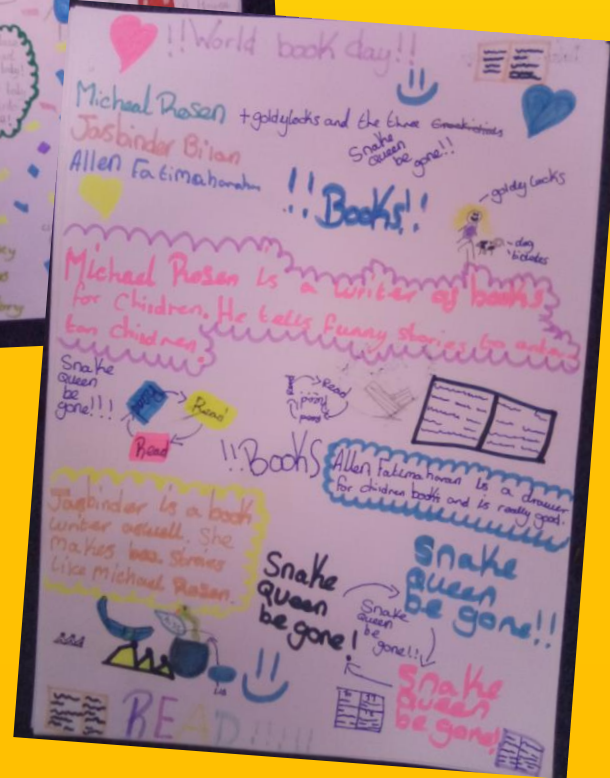 !!World book day!!
Micheal Rosen + goldylocks and the three
Jasbinder Bilan
Allen Fatimaharan
Snake
queen
be gone!!
!!Books!!
goldy locks
dog
Michael Rosen is a writer of books
for Children. He tells funny stories to
children.
Snake
queen
be
gone!!!
Read
Read!
Read
Read
!!Books
Allen Fatimaharan is a drawer
for children books and is really good.
Jasbinder is a book
writer aswell. She
makes stories
like Michael Rosen.
Snake
queen
be gone!
Snake
queen
be gone!!
Snake
queen
be
gone!!!
Snake
queen
be gone!!
READ!!!!!